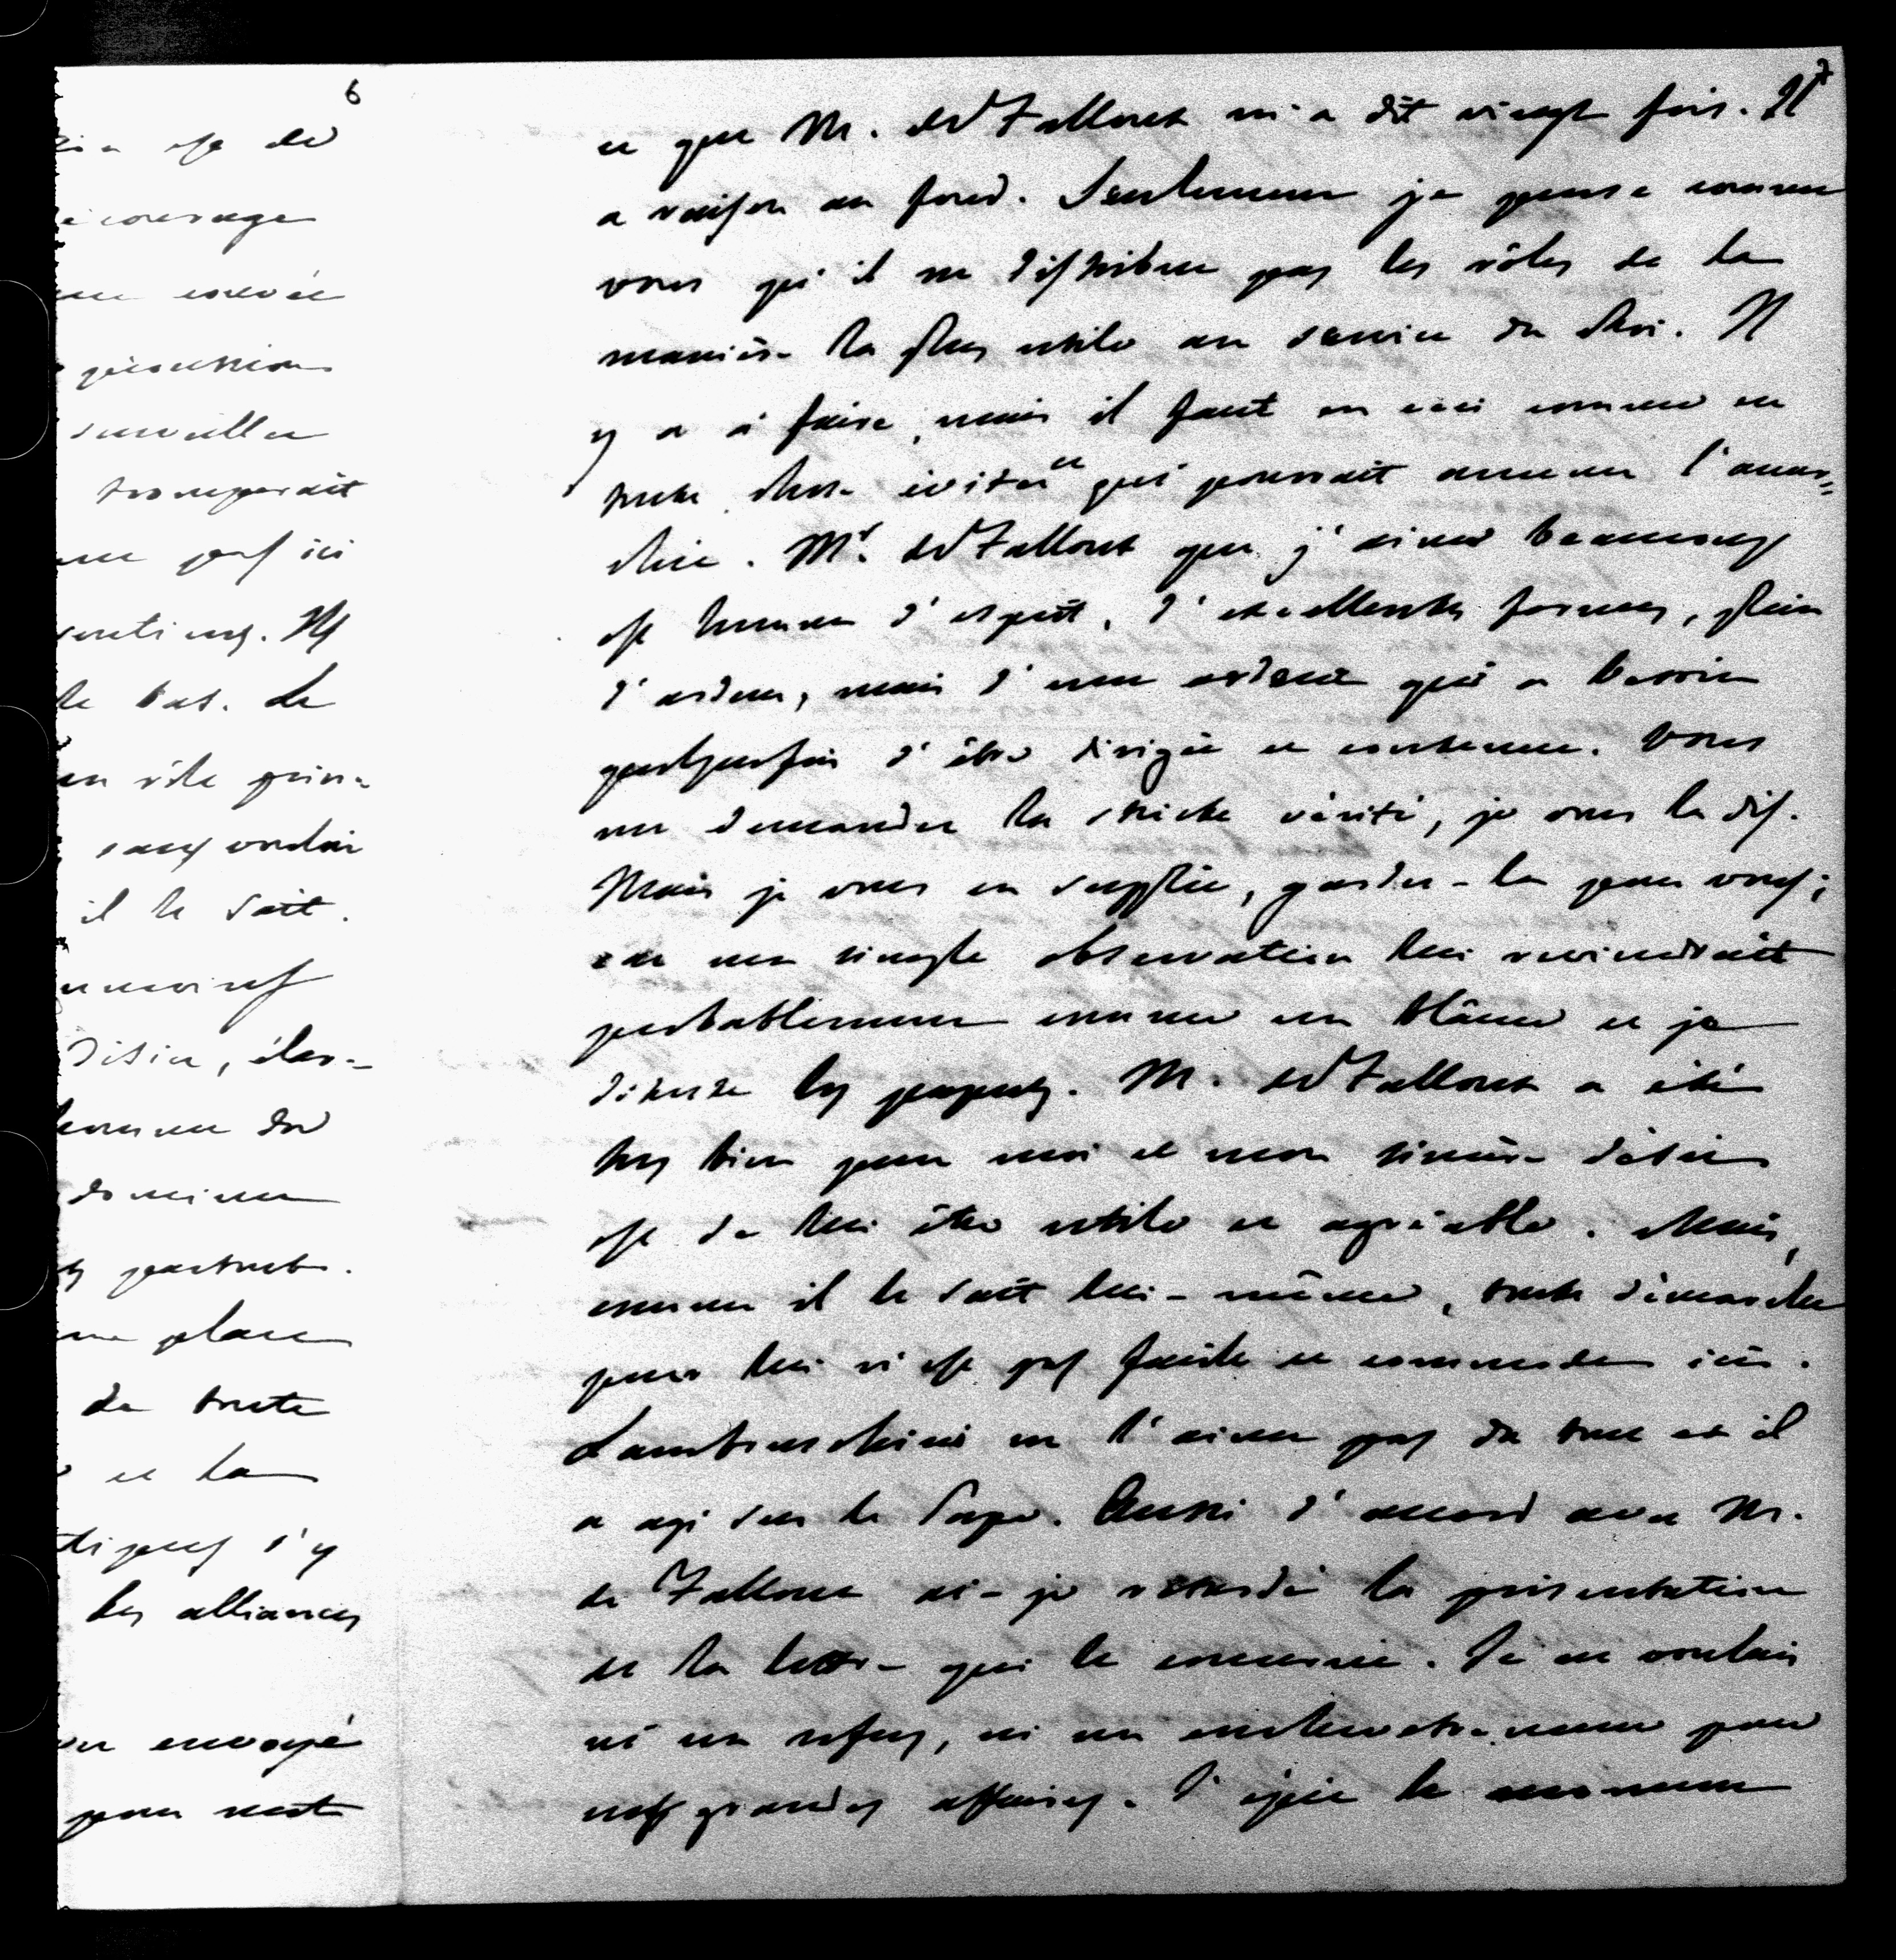 6
est de
courage
persécution
surveiller
tromperait
pas ici
le bat. Le
un rôle prin-
sans vouloir
il le sait.
désire, élar-
comme du
dominer
partout.
une place
de toute
et la
s'y
les alliances
envoyé
pour
7
ce que M. de Falloux m'a dit vingt fois. Il
a raison au fond. Seulement je pense comme
vous qu'il ne distribue pas les rôles de la
manière la plus utile au service du Roi. Il
y a à faire, mais il faut en ceci comme en
toute chose éviter ce qui pourrait amener l'anar-
chie. Mr. de Falloux que j'aime beaucoup
est homme d'esprit, d'excellentes formes, plein
d'ardeur, mais d'une ardeur qui a besoin
quelquefois d'être dirigée et contenue. Vous
me demandez la stricte vérité, je vous la dis.
Mais je vous en supplie, gardez-la pour vous;
car une simple observation lui reviendrait
probablement comme un blâme et je
déteste les paquets. M. de Falloux a été
très bien pour moi et mon sincère désir
est de lui être utile et agréable. Mais,
comme il le sait lui-même, toute démarche
pour lui n'est pas facile et commode ici.
Lambruschini ne l'aime pas du tout et il
a agi sur le Pape. Aussi d'accord avec M.
de Falloux ai-je retardé la présentation
de la lettre qui le concerne. Je ne voulais
ni un refus, ni un enchevêtrement pour
nos grandes affaires. J'épie le moment